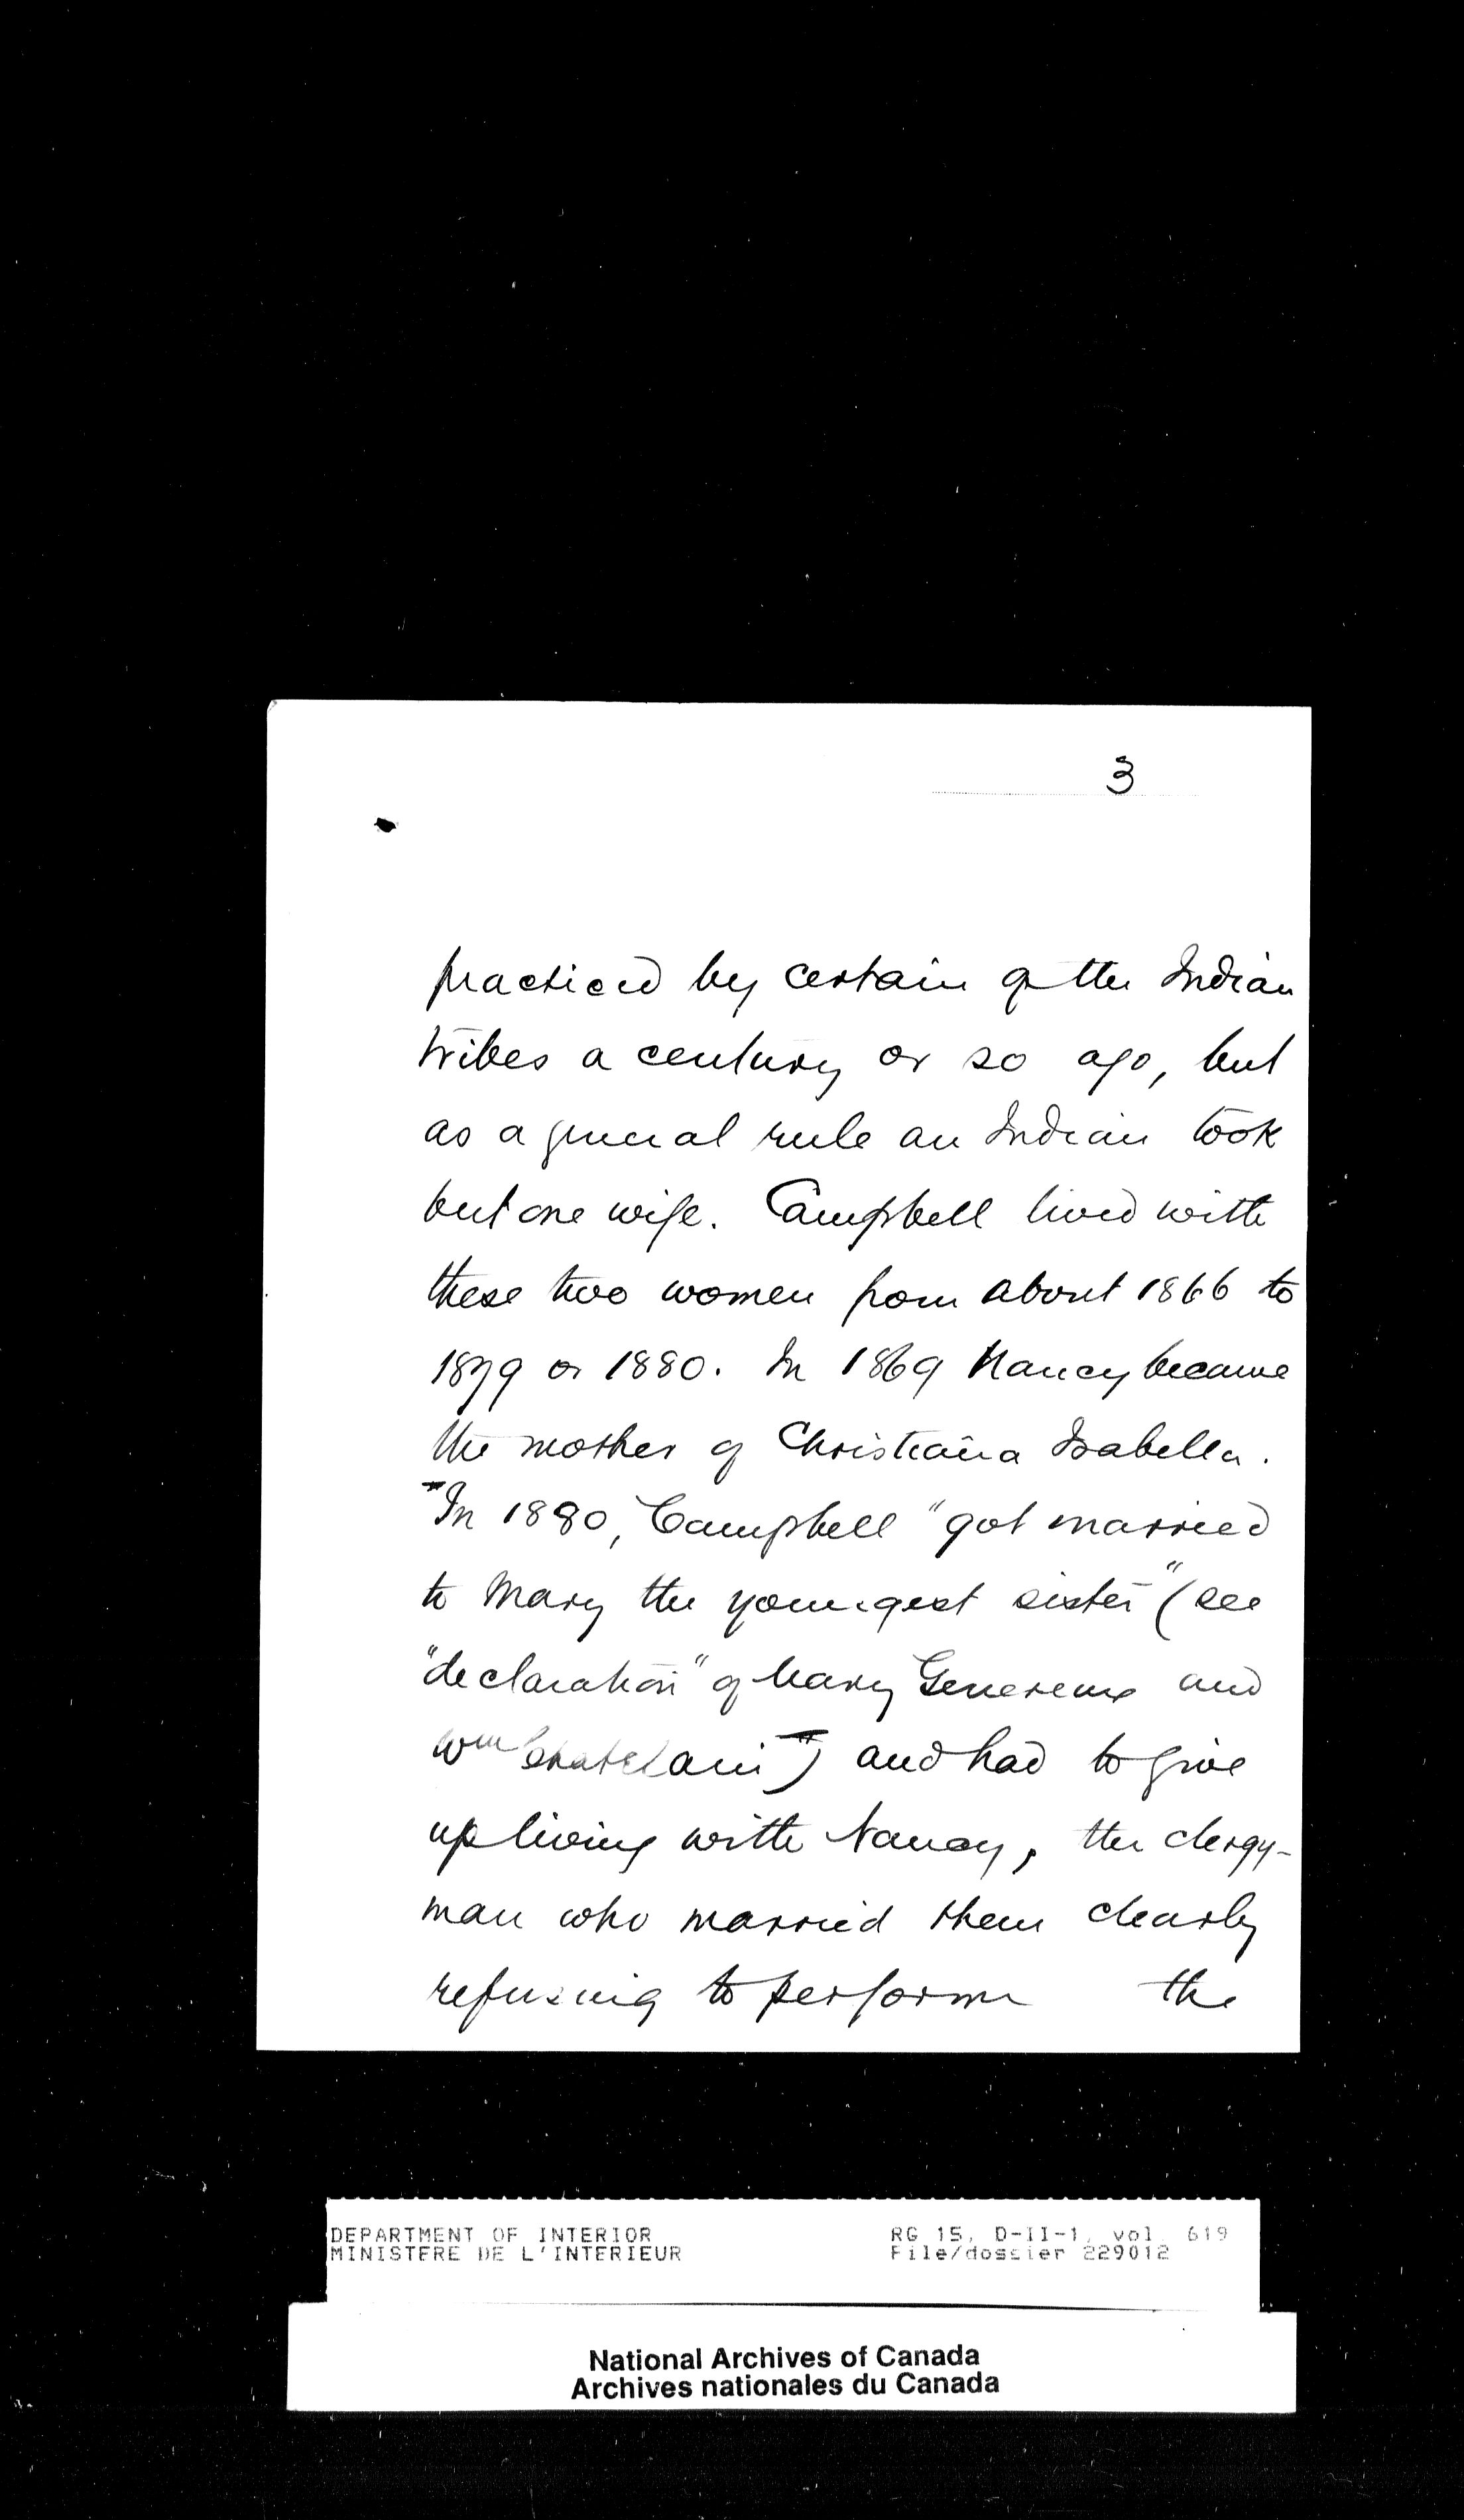 3
practiced by certain of the Indian
tribes a century or so ago, but
as a general rule an Indian took
but one wife. Campbell lived with
these two women from about 1866 to
1879 or 1880. In 1869 Nancy became
the mother of Christiana Isabella.
In 1880, Campbell "got married
to Mary the youngest sister" (see
"declaration" of Mary Genereux and
Wm Chatelain) and had to give
up living with Nancy, the clergy-
man who married them clearly
refusing to perform the
DEPARTMENT OF INTERIOR
MINISTERE DE L'INTERIEUR
RG 15, D-II-1, vol. 619
File/dossier 229012
National Archives of Canada
Archives nationales du Canada